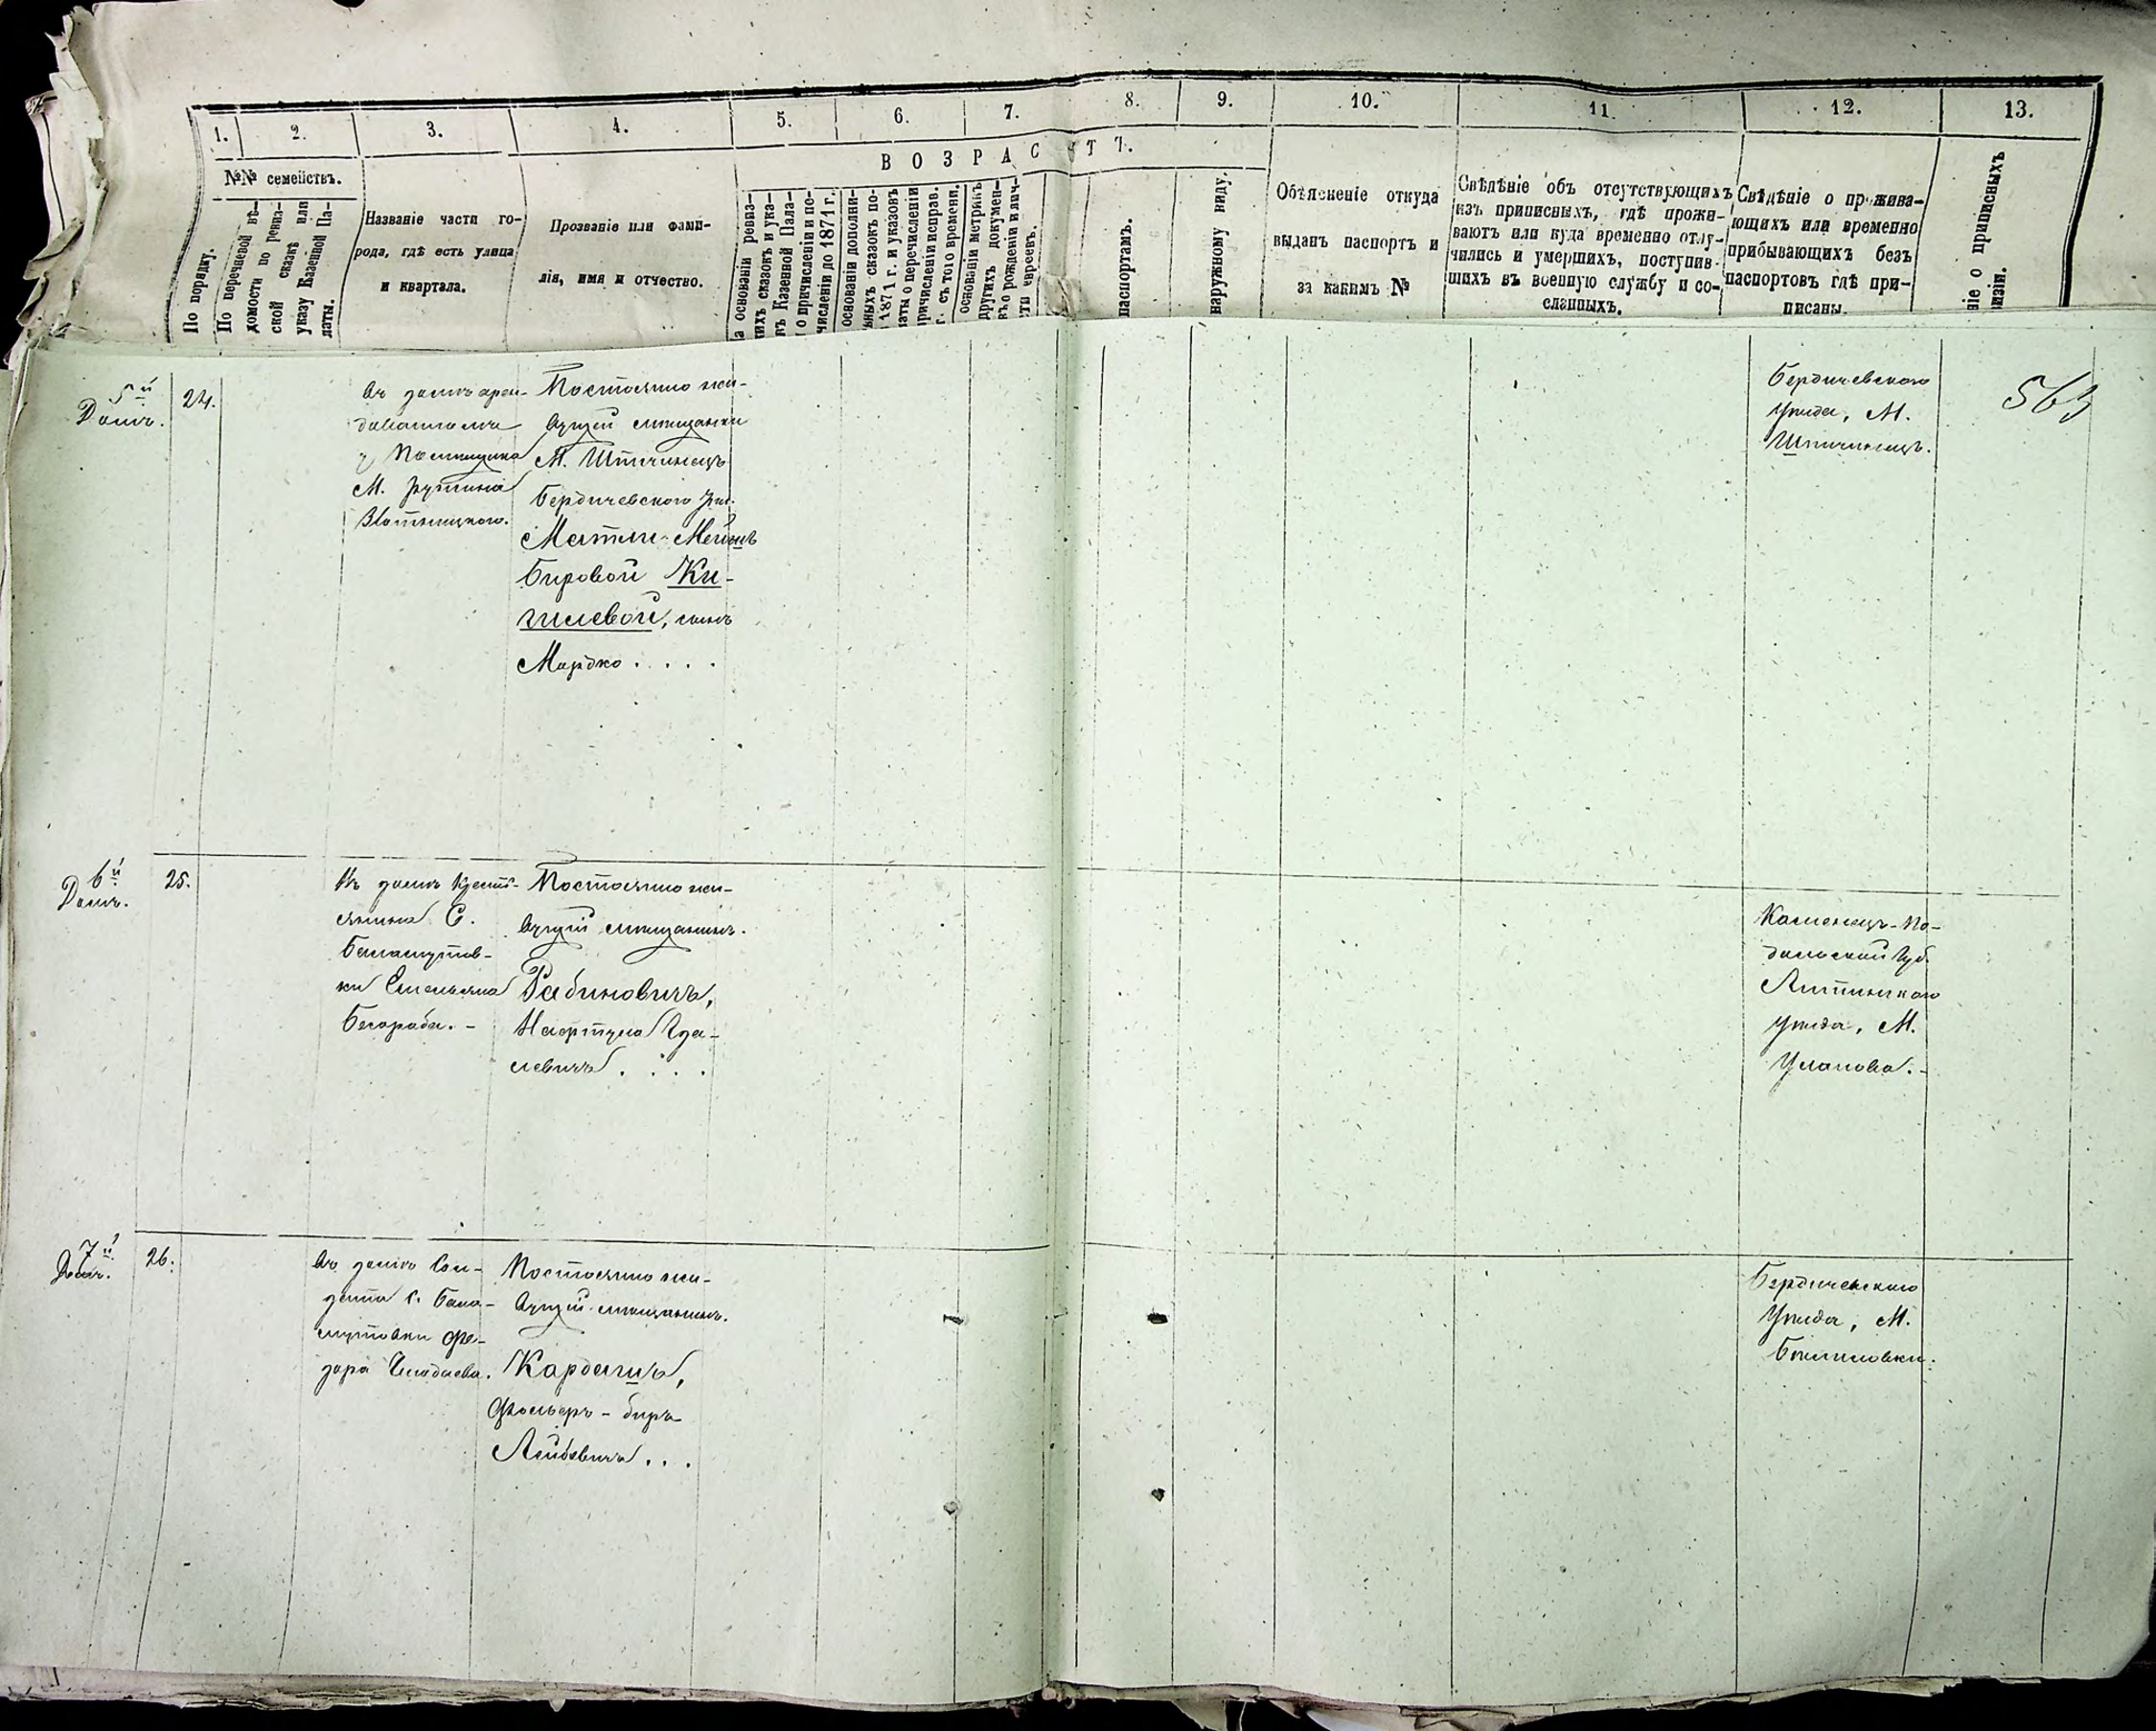 1.
2.
3.
4.
5.
6.
7.
8.
9.
10.
11.
12.
13.
№№ семействъ.
ВОЗРАСТЪ.
По порядку.
По перечневой вѣ-
домости по ревиз-
ской сказкѣ или
указу Казенной Па-
латы.
Названіе части го-
рода, гдѣ есть улица
и квартала.
Прозваніе или фами-
лія, имя и отчество.
а основаніи ревиз-
ихъ сказокъ и ука-
ъ Казенной Пала-
о причисленіи и по-
численіи до 1871 г.
основаніи дополни-
ьныхъ сказокъ по-
1871 г. и указовъ
латы о перечисленіи
причисленіи исправ.
г. съ того времени.
основаніи метрикъ
другихъ докумен-
въ о рожденіи и лич-
сти евреевъ.
паспортамъ.
наружному виду.
Объясненіе откуда
выданъ паспортъ и
за какимъ №
Свѣдѣніе объ отсутствующихъ
изъ приписныхъ, гдѣ прожи-
ваютъ или куда временно отлу-
чились и умершихъ, поступив-
шихъ въ военную службу и со-
сланныхъ.
Свѣдѣніе о прожива-
ющихъ или временно
прибывающихъ безъ
паспортовъ гдѣ при-
писаны.
ніе о приписныхъ
визіи.
5й
Домъ.
24.
Въ домѣ арен-
дователя
у помѣщика
М. Ружина
Злотницкого.
Постоянно жи-
вущей мѣщанки
М.
Бердичевского уѣз.
Матли-Мейшъ
Бировой Ки-
гилевой, сынъ
Мордко . . . .
Бердичевского
уѣзда, М.
563
6й
Домъ.
25.
Въ домѣ крест-
янина С.
Баламутов-
ки Емельяна
Бесараба. -
Постоянно жи-
вущій мѣщанинъ.
Рабиновичъ,
Нафтула Гда-
левичъ . . . .
Каменецъ-По-
дольской Губ.
Литинского
уѣзда, М.
Уланова. -
7й
Домъ.
26.
Въ домѣ Сол-
дата с. Бала-
мутовки Фе-
дора
Постоянно жи-
вущій мѣщанинъ.
Кардашъ,
-беръ
Лейбовичъ . . .
Бердичевского
уѣзда, М.
Бѣлиловки.